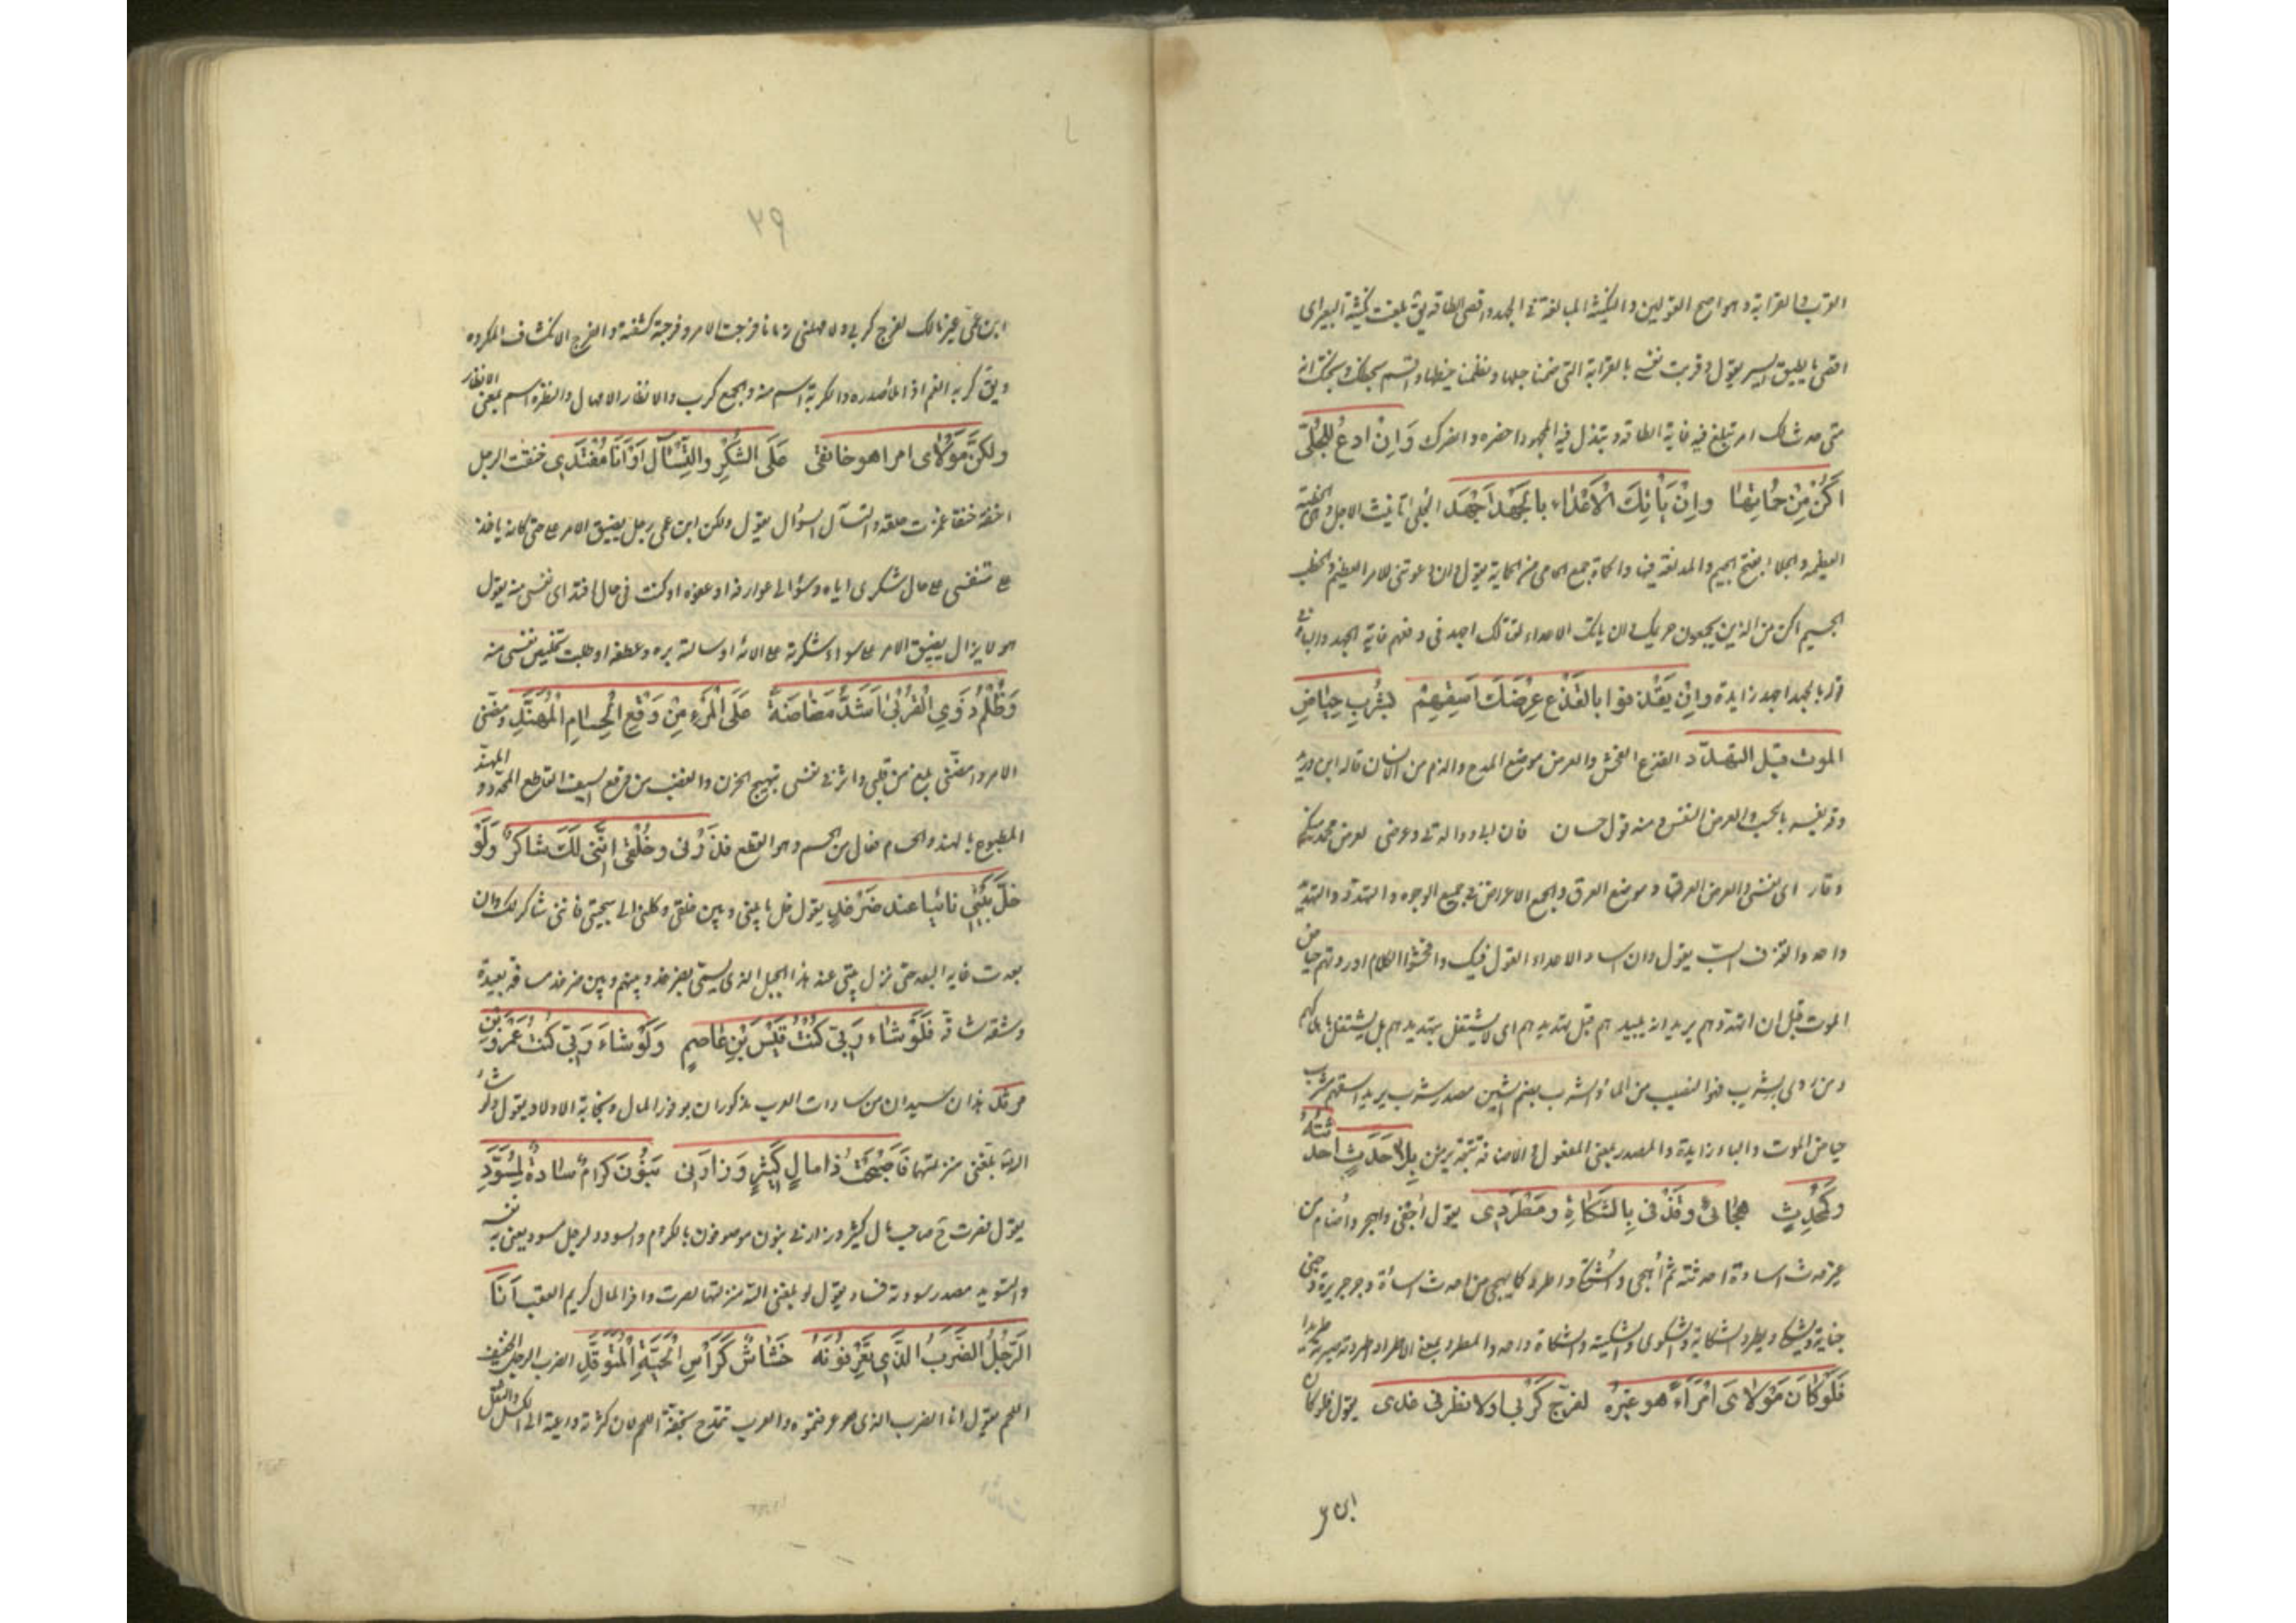 القرب والقرابة وهو اصح القولين والنكيثة المبالغة في الجهد واقصى الطاقة يق بلغت نكيثة البعير اى
اقصى ما يطيق السير يقول وقربت نفسى بالقرابة التى ضمنا حبلها ونظمنا خيطها واقسم بجدك وبختك انه
متى حدث لك امر تبلغ فيه غاية الطاقة وتبذل فيه المجهود احضره وانصرك وَاِنْ ادعُ للجُلّى
اَكُنْ مِنْ حُماتِها وَاِنْ يَأْتِكَ الْاَعْداء بالجَهْدِ اَجْهَدِ الجلى تانيث الاجل وهى الخطة
العظيمة والجلاء بفتح الجيم والمد لغة فيها والحماة جمع الحامى من الحماية يقول وان دعوتنى للامر العظيم والخطب
الجسيم اكن من الذين يحمون حريمك وان ياتك الاعداء لقتالك اجهد فى دفعهم غاية الجهد والباء فى
قوله بالجهد اجهد زايدة وَاِنْ يَقْذِفُوا بالقَذْعِ عِرْضَكَ اَسْقِهِمْ بشُرْبِ حِياضِ
الموت قبل التهدّد القذع الفحش والعرض موضع المدح والذم من الانسان قاله ابن دريد
وقد يفسر بالحسب والعرض النفس ومنه قول حسان فان ابى ووالدتى وعرضى لعرض محمد منكم
وقاء اى نفسى والعرض العرق وموضع العرق والجمع الاعراض فى جميع الوجوه والتهدد والتهديد
واحد والقذف السب يقول وان اساء الاعداء القول فيك وافحشوا الكلام اوردتهم حياض
الموت قبل ان اتهددهم يريد انه يبيدهم قبل تهديدهم اى لا يشتغل بتهديدهم بل يشتغل باهلاكهم
ومن روى بشرب فهو النصيب من الماء والشرب بضم الشين مصدر شرب يريد اسقهم شرب
حياض الموت والباء زايدة والمصدر بمعنى المفعول والاضافة بتقدير من بِلا حَدَثٍ احدثتُهُ
وكَمُحْدِثٍ هِجائى وقَذْفى بِالشَكاةِ ومَطْرَدى يقول اجفى واهجر واضام من
غير حدث اساءة احدثته ثم اُهجى واُشكا واطرد كما يهجى من احدث اساءة وجر جريرة وجنى
جناية ويشكا ويطرد الشكاية والشكوى والشكية والشكاة واحد والمطرد بمعنى الاطراد اطردته صيرته طريدا
فَلَوْ كانَ مَوْلاىَ امْرَاءً هو غَيْرُه لفرّج كَرْبى او لانظرنى غدى يقول فلو كان
ابن ع
٢٩
ابن عمى غير مالك لفرج كربى ولا مهلنى زمانا فرجت الامر وفرجته كشفته والفرج الانكشاف المكروه
ويق كربه الغم اذا ملأ صدره والكربة اسم منه والجمع كرب والانظار الامهال والنظرة اسم بمعنى الانظار
ولكنّ مَوْلاى امرا هو خانقى عَلَى الشُكْرِ والتَسْآلِ اَوْ اَنَا مُفْتَدى خنقت الرجل
اخنقه خنقا عصرت حلقه والتسآل السؤال يقول ولكن ابن عمى رجل يضيق الامر على حتى كانه ياخذ
على تنفسى على حال شكرى اياه وسؤالى عوارفه وعفوه او كنت فى حال افتداى نفسى منه يقول
هو لا يزال يضيق الامر على سواء شكرته على آلائه او سالته بره وعطفه او طلبت تخليص نفسى منه
وَظُلْمُ ذَوى الْقُرْبى اَشَدُّ مَضاضَةً عَلَى الْمَرْءِ مِنْ وَقْعِ الْحُسامِ الْمُهَنَّدِ مضنى
الامر وامضنى بلغ من قلبى واثر فى نفسى تهييج الحزن والغضب من وقع السيف القاطع المحدد والمهند
المطبوع بالهند والحسام فعال من الحسم وهو القطع فَذَرْنى وخُلْقى اِنَّنى لَكَ شاكِرٌ وَلَوْ
حَلَّ بَيْتى نائيا عند ضَرْغَدِ يقول خل ما بينى وبين خلقى وكلنى الى سجيتى فاننى شاكر لك وان
بعدت غاية البعد حتى نزل بيتى عند هذا الجبل الذى يسمى بضرغد وبينهم وبين ضرغد مسافة بعيدة
وشقة شاقة فَلَوْ شاءَ رَبّى كُنْتُ قَيْسَ بْنَ عاصِمٍ وَلَوْ شاءَ رَبّى كُنْتُ عَمْرَو بْنَ
مرثد هذان سيدان من سادات العرب مذكوران بوفور المال ونجابة الاولاد يقول ولو شاء
الله بلغنى منزلتهما فَاَصْبَحْتُ ذا مالٍ كَثيرٍ وَزارَنى بَنُونَ كِرامٌ سادةٌ لِمُسَوَّدِ
يقول فصرت ح صاحب مال كثير وزارنى بنون موصوفون بالكرم والسودد لرجل مسود يعنى به نفسه
والتسويد مصدر سودته فساد يقول لو بلغنى الله منزلتهما لصرت وافر المال كريم العقب اَنَا
الرَّجُلُ الضَّرْبُ الَّذى تَعْرِفُونَهُ خَشاشٌ كَرَاْسِ الْحَيَّةِ الْمُتَوَقِّدِ الضرب الرجل الخفيف
اللحم يقول انا الضرب الذى عرفتموه والعرب تتمدح بخفة اللحم لان كثرته داعية الى الكسل والثقل